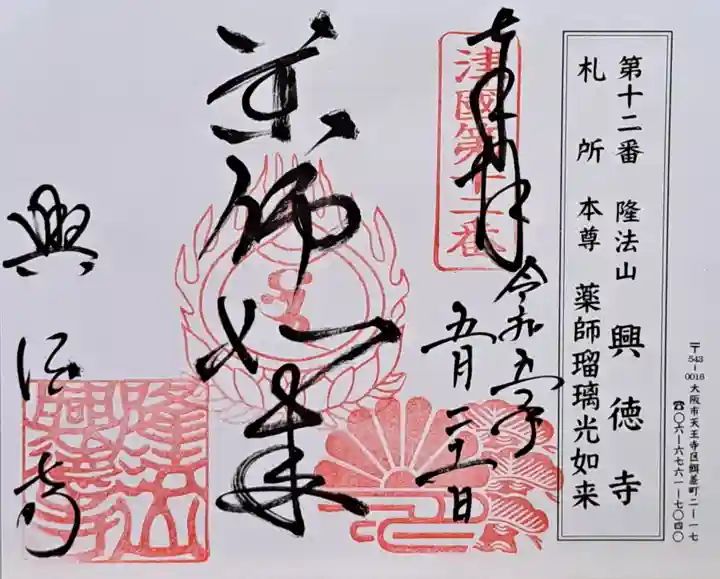 〒543-0016 大阪市天王寺区餌差町二-一七
☎〇六-六七六一-七〇四〇
第十二番 隆法山 興徳寺
札所本尊 薬師瑠璃光如来
奉拝
津國第十二番
令和五年
五月二十一日
薬師如来
興徳寺
隆法山
興德寺